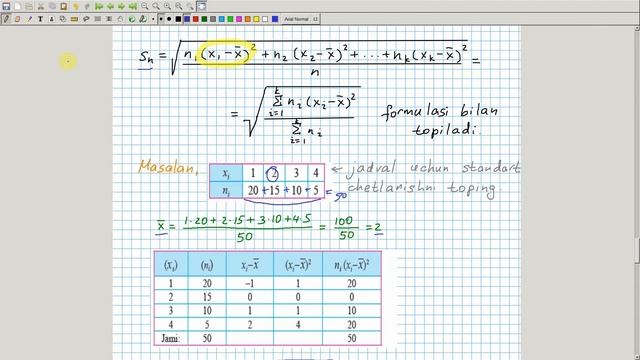 Arial Normal 12
Sₙ = √((n₁(x₁−x̄)² + n₂(x₂−x̄)² + ... + nₖ(xₖ−x̄)²)/n) =
= √((Σᵢ₌₁ᵏ nᵢ(xᵢ−x̄)²)/(Σᵢ₌₁ᵏ nᵢ)) formulasi bilan
topiladi.
Masalan, xᵢ 1 2 3 4 ← jadval uchun standart
nᵢ 20 +15 +10 +5 = 50 chetlanishni toping.
x̄ = (1·20+2·15+3·10+4·5)/50 = 100/50 = 2
(xᵢ) (nᵢ) xᵢ−x̄ (xᵢ−x̄)² nᵢ(xᵢ−x̄)²
1 20 −1 1 20
2 15 0 0 0
3 10 1 1 10
4 5 2 4 20
Jami: 50 50